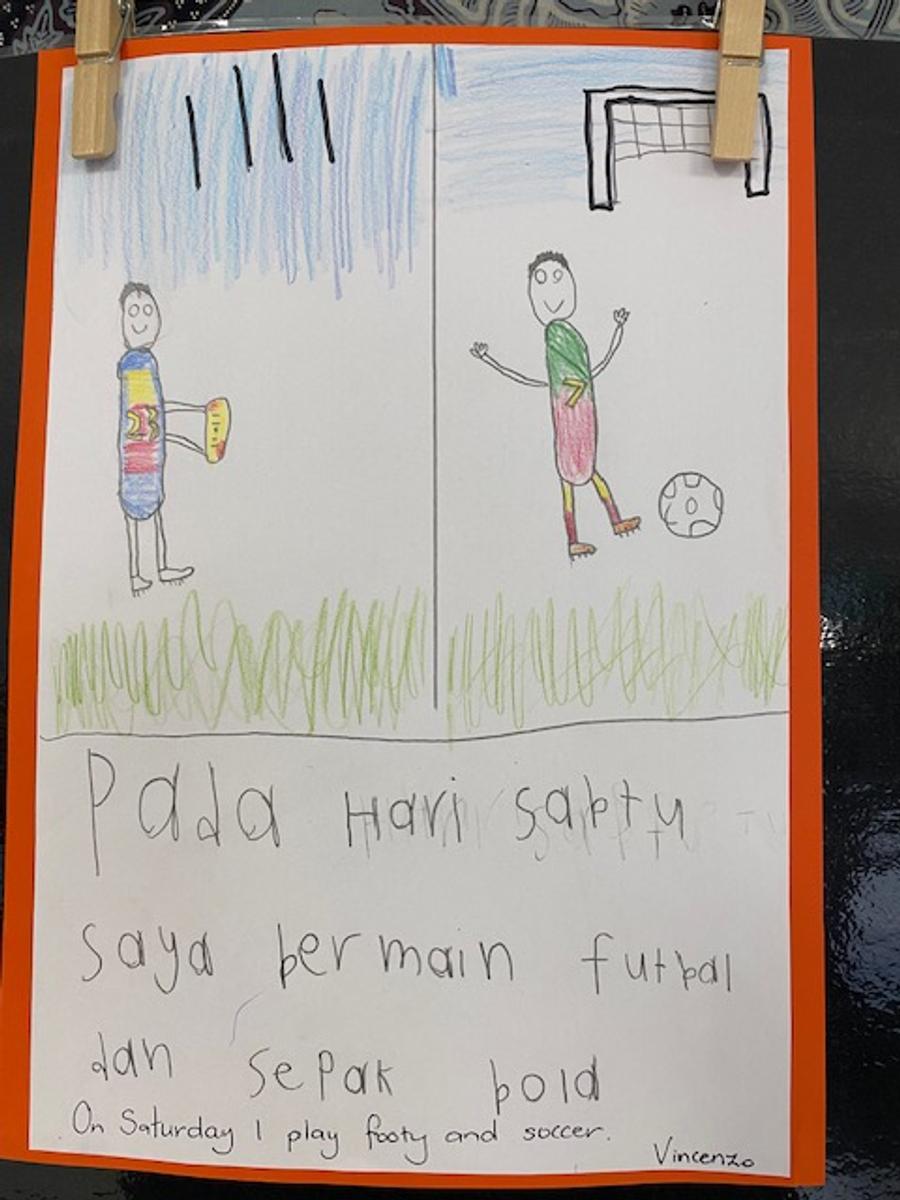 23
7
Pada Hari sabtu
saya bermain futbal
dan sepak bola
On Saturday I play footy and soccer.
Vincenzo